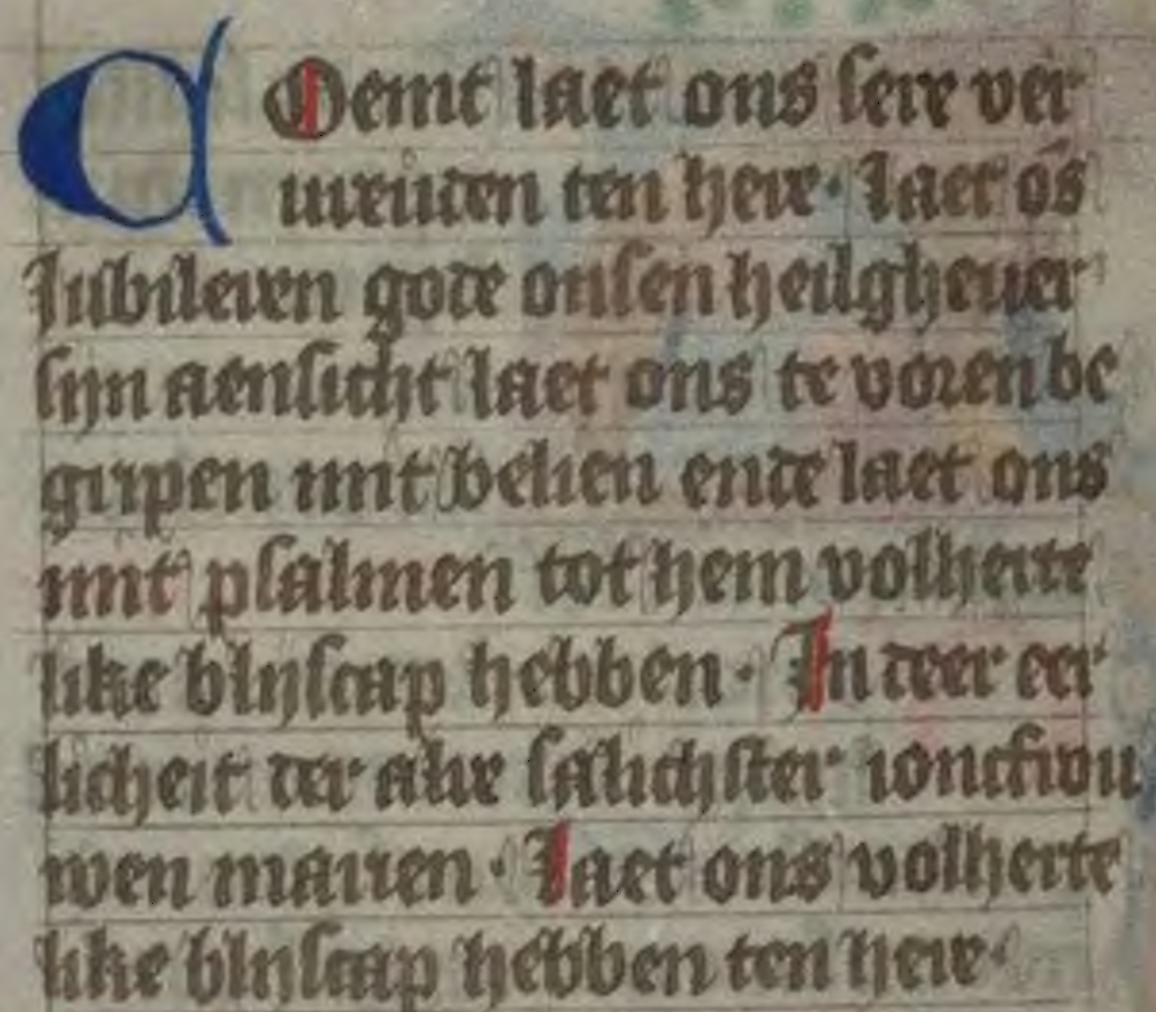 COemt laet ons sere ver
ureuden den here · Laet ōs
Jubileren gode onsen heilghever
sijn aensicht laet ons te voren be
gripen mit belien ende laet ons
mit psalmen tot hem volherte
like blijscap hebben · In deer eer
licheit der alre salichster ioncfrou
wen marien · Laet ons volherte
like blijscap hebben den here ·